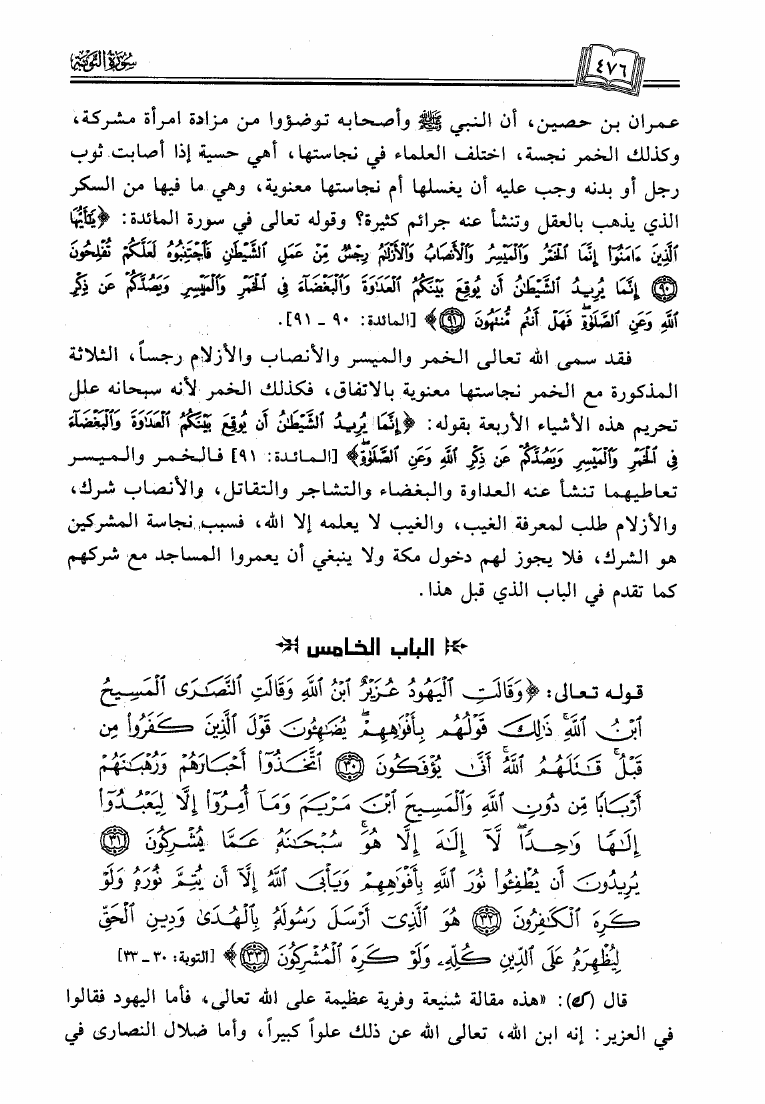 سورة التوبة
٤٧٦
عمران بن حصين، أن النبي ﷺ وأصحابه توضؤوا من مزادة امرأة مشركة،
وكذلك الخمر نجسة، اختلف العلماء في نجاستها، أهي حسية إذا أصابت ثوب
رجل أو بدنه وجب عليه أن يغسلها أم نجاستها معنوية، وهي ما فيها من السكر
الذي يذهب بالعقل وتنشأ عنه جرائم كثيرة؟ وقوله تعالى في سورة المائدة: ﴿يَٰٓأَيُّهَا
ٱلَّذِينَ ءَامَنُوٓا۟ إِنَّمَا ٱلْخَمْرُ وَٱلْمَيْسِرُ وَٱلْأَنصَابُ وَٱلْأَزْلَٰمُ رِجْسٌ مِّنْ عَمَلِ ٱلشَّيْطَٰنِ فَٱجْتَنِبُوهُ لَعَلَّكُمْ تُفْلِحُونَ
٩٠ إِنَّمَا يُرِيدُ ٱلشَّيْطَٰنُ أَن يُوقِعَ بَيْنَكُمُ ٱلْعَدَٰوَةَ وَٱلْبَغْضَآءَ فِى ٱلْخَمْرِ وَٱلْمَيْسِرِ وَيَصُدَّكُمْ عَن ذِكْرِ
ٱللَّهِ وَعَنِ ٱلصَّلَوٰةِ ۖ فَهَلْ أَنتُم مُّنتَهُونَ ٩١﴾ [المائدة: ٩٠ - ٩١].
فقد سمى الله تعالى الخمر والميسر والأنصاب والأزلام رجساً، الثلاثة
المذكورة مع الخمر نجاستها معنوية بالاتفاق، فكذلك الخمر لأنه سبحانه علل
تحريم هذه الأشياء الأربعة بقوله: ﴿إِنَّمَا يُرِيدُ ٱلشَّيْطَٰنُ أَن يُوقِعَ بَيْنَكُمُ ٱلْعَدَٰوَةَ وَٱلْبَغْضَآءَ
فِى ٱلْخَمْرِ وَٱلْمَيْسِرِ وَيَصُدَّكُمْ عَن ذِكْرِ ٱللَّهِ وَعَنِ ٱلصَّلَوٰةِ ۖ﴾ [المائدة: ٩١] فالخمر والميسر
تعاطيهما تنشأ عنه العداوة والبغضاء والتشاجر والتقاتل، والأنصاب شرك،
والأزلام طلب لمعرفة الغيب، والغيب لا يعلمه إلا الله، فسبب نجاسة المشركين
هو الشرك، فلا يجوز لهم دخول مكة ولا ينبغي أن يعمروا المساجد مع شركهم
كما تقدم في الباب الذي قبل هذا.
الباب الخامس
قوله تعالى: ﴿وَقَالَتِ ٱلْيَهُودُ عُزَيْرٌ ٱبْنُ ٱللَّهِ وَقَالَتِ ٱلنَّصَٰرَى ٱلْمَسِيحُ
ٱبْنُ ٱللَّهِ ۖ ذَٰلِكَ قَوْلُهُم بِأَفْوَٰهِهِمْ ۖ يُضَٰهِـُٔونَ قَوْلَ ٱلَّذِينَ كَفَرُوا۟ مِن
قَبْلُ ۚ قَٰتَلَهُمُ ٱللَّهُ ۚ أَنَّىٰ يُؤْفَكُونَ ٣٠ ٱتَّخَذُوٓا۟ أَحْبَارَهُمْ وَرُهْبَٰنَهُمْ
أَرْبَابًا مِّن دُونِ ٱللَّهِ وَٱلْمَسِيحَ ٱبْنَ مَرْيَمَ وَمَآ أُمِرُوٓا۟ إِلَّا لِيَعْبُدُوٓا۟
إِلَٰهًا وَٰحِدًا ۖ لَّآ إِلَٰهَ إِلَّا هُوَ ۚ سُبْحَٰنَهُۥ عَمَّا يُشْرِكُونَ ٣١
يُرِيدُونَ أَن يُطْفِـُٔوا۟ نُورَ ٱللَّهِ بِأَفْوَٰهِهِمْ وَيَأْبَى ٱللَّهُ إِلَّآ أَن يُتِمَّ نُورَهُۥ وَلَوْ
كَرِهَ ٱلْكَٰفِرُونَ ٣٢ هُوَ ٱلَّذِىٓ أَرْسَلَ رَسُولَهُۥ بِٱلْهُدَىٰ وَدِينِ ٱلْحَقِّ
لِيُظْهِرَهُۥ عَلَى ٱلدِّينِ كُلِّهِۦ وَلَوْ كَرِهَ ٱلْمُشْرِكُونَ ٣٣﴾ [التوبة: ٣٠ - ٣٣]
قال (ك): «هذه مقالة شنيعة وفرية عظيمة على الله تعالى، فأما اليهود فقالوا
في العزير: إنه ابن الله، تعالى الله عن ذلك علواً كبيراً، وأما ضلال النصارى في